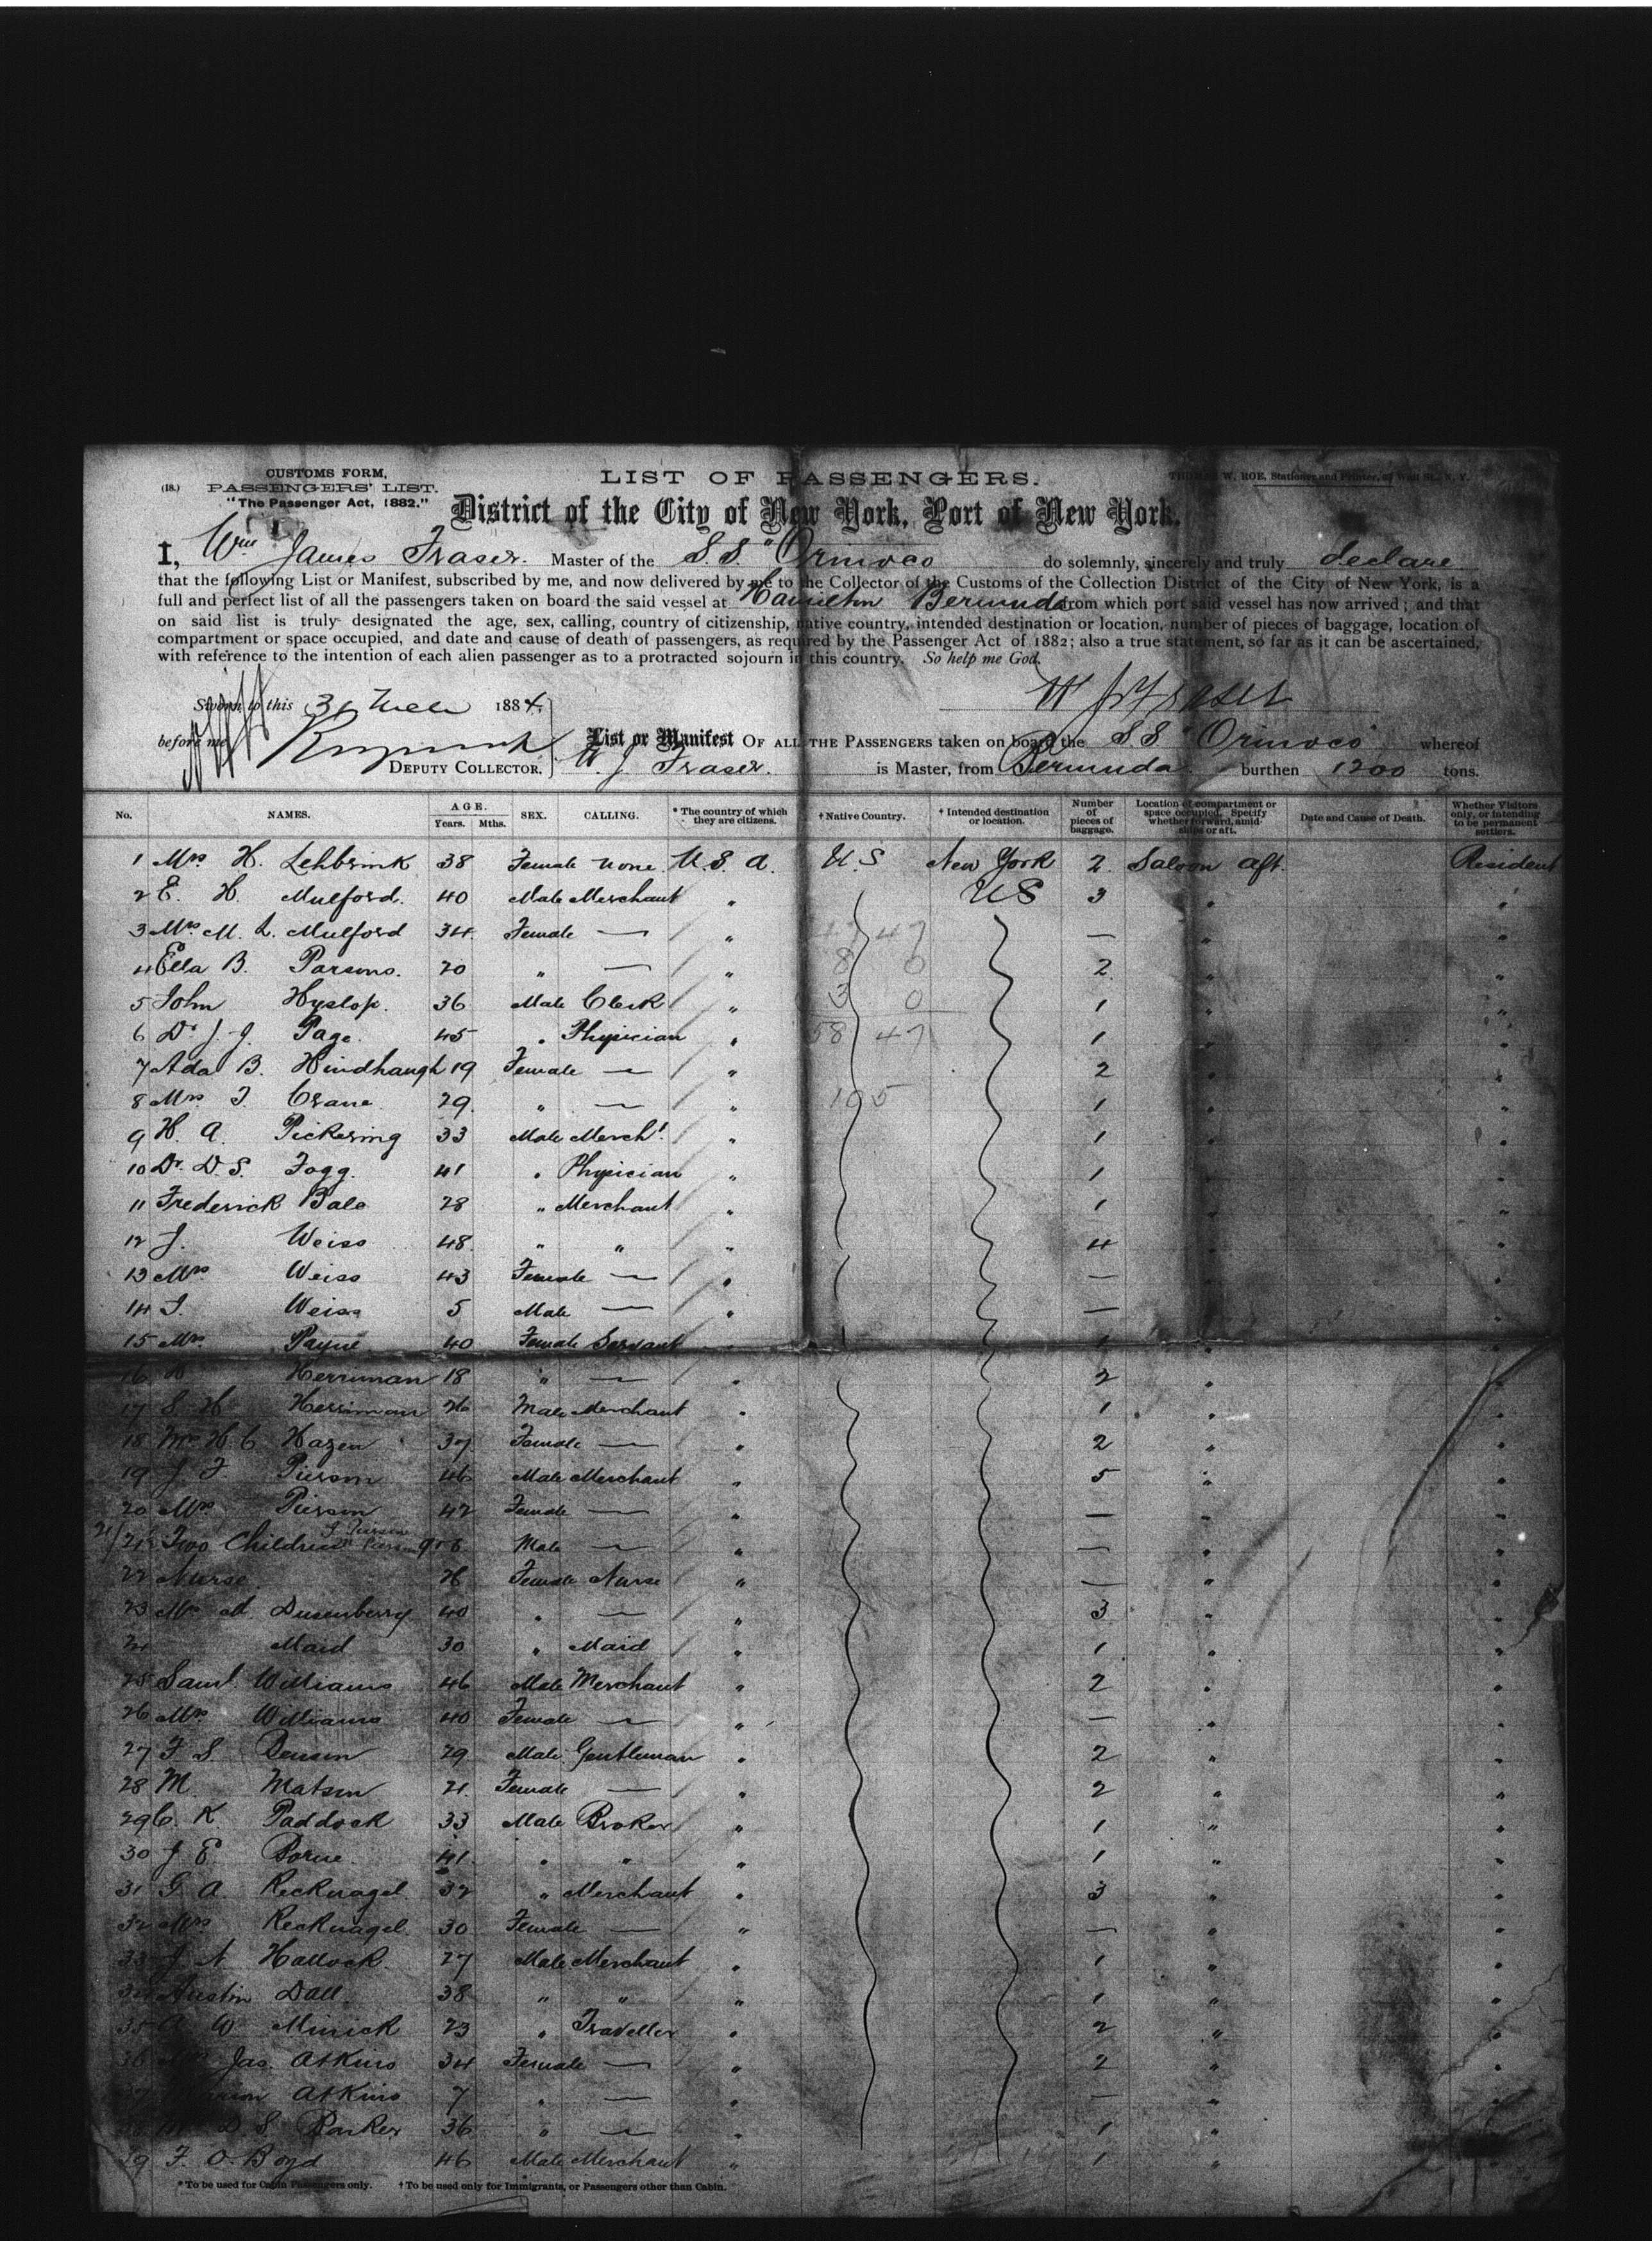 CUSTOMS FORM,
(18.) PASSENGERS' LIST.
"The Passenger Act, 1882."
LIST OF PASSENGERS.
THOMAS W. ROE, Stationer and Printer, Wall St., N. Y.
District of the City of New York, Port of New York.
I, Wm James Fraser. Master of the S.S. "Orinoco do solemnly, sincerely and truly declare
that the following List or Manifest, subscribed by me, and now delivered by me to the Collector of the Customs of the Collection District of the City of New York, is a
full and perfect list of all the passengers taken on board the said vessel at Hamilton Bermuda from which port said vessel has now arrived; and that
on said list is truly designated the age, sex, calling, country of citizenship, native country, intended destination or location, number of pieces of baggage, location of
compartment or space occupied, and date and cause of death of passengers, as required by the Passenger Act of 1882; also a true statement, so far as it can be ascertained,
with reference to the intention of each alien passenger as to a protracted sojourn in this country. So help me God.
W J Fraser
Sworn to this 31 1884
before me
DEPUTY COLLECTOR.
List or Manifest OF ALL THE PASSENGERS taken on board the S.S. "Orinoco" whereof
W. J. Fraser. is Master, from Bermuda burthen 1200 tons.
No. NAMES. AGE. Years. Mths. SEX. CALLING. * The country of which they are citizens. † Native Country. † Intended destination or location. Number of pieces of baggage. Location of compartment or space occupied. Specify whether forward, amidships or aft. Date and Cause of Death. Whether Visitors only, or intending to be permanent settlers.
1 Mrs H. Lehbrink 38 Female none U.S.A. U.S New York 2 Saloon aft. Resident
2 E. H. Mulford. 40 Male Merchant " US 3 " "
3 Mrs M. L. Mulford 34 Female — " — " "
4 Ella B. Parsons. 20 " — " 2 " "
5 John Hyslop. 36 Male Clerk " 1 " "
6 Dr J. J. Page 45 " Physician " 1 " "
7 Ada B. Hindhaugh 19 Female — " 2 " "
8 Mrs T. Crane 29 " — " 1 " "
9 H. A. Pickering 33 Male Mercht. " 1 " "
10 Dr. D. S. Fogg. 41 " Physician " 1 " "
11 Frederick Bale 28 " Merchant " 1 " "
12 J. Weiss 48 " " " 4 " "
13 Mrs Weiss 43 Female — " — " "
14 J. Weiss 5 Male — " — " "
15 Mrs. Payne 40 Female Servant 1 " "
16 Herriman 18 " — " 2 " "
17 S H Herriman 26 Male Merchant " 1 " "
18 Mrs H C Hazen 37 Female — " 2 " "
19 J. F. Pierson 46 Male Merchant " 5 " "
20 Mrs Pierson 42 Female — " — " "
21 Two Children Male — " — " "
22 Nurse 26 Female Nurse " — " "
23 Mrs M. Dusenberry 40 " — " 3 " "
24 Maid 30 " Maid " 1 " "
25 Saml. Williams 46 Male Merchant " 2 " "
26 Mrs Williams 40 Female — " — " "
27 F. S. Benson 29 Male Gentleman " 2 " "
28 M. Matson 21 Female — " 2 " "
29 C. K. Paddock 33 Male Broker " 1 " "
30 J. E. 41 " " " 1 " "
31 G. A. Recknagel 32 " Merchant " 3 " "
32 Mrs Recknagel. 30 Female — " — " "
33 J. N. Hallock 27 Male Merchant " 1 " "
34 Austin Dall 38 " " " 1 " "
35 A W. Minick 23 " Traveller " 2 " "
36 Mrs Jas. Atkins 34 Female — " 2 " "
37 Atkins 7 " — " — " "
38 D. S. Barker 36 " — " 1 " "
39 F. O. Boyd 46 Male Merchant " 1 " "
* To be used for Cabin Passengers only. † To be used only for Immigrants, or Passengers other than Cabin.